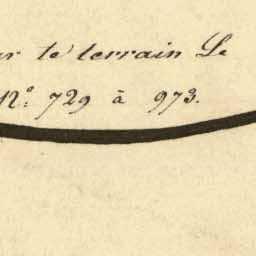 ur le terrain Le
N° 729 à 973.